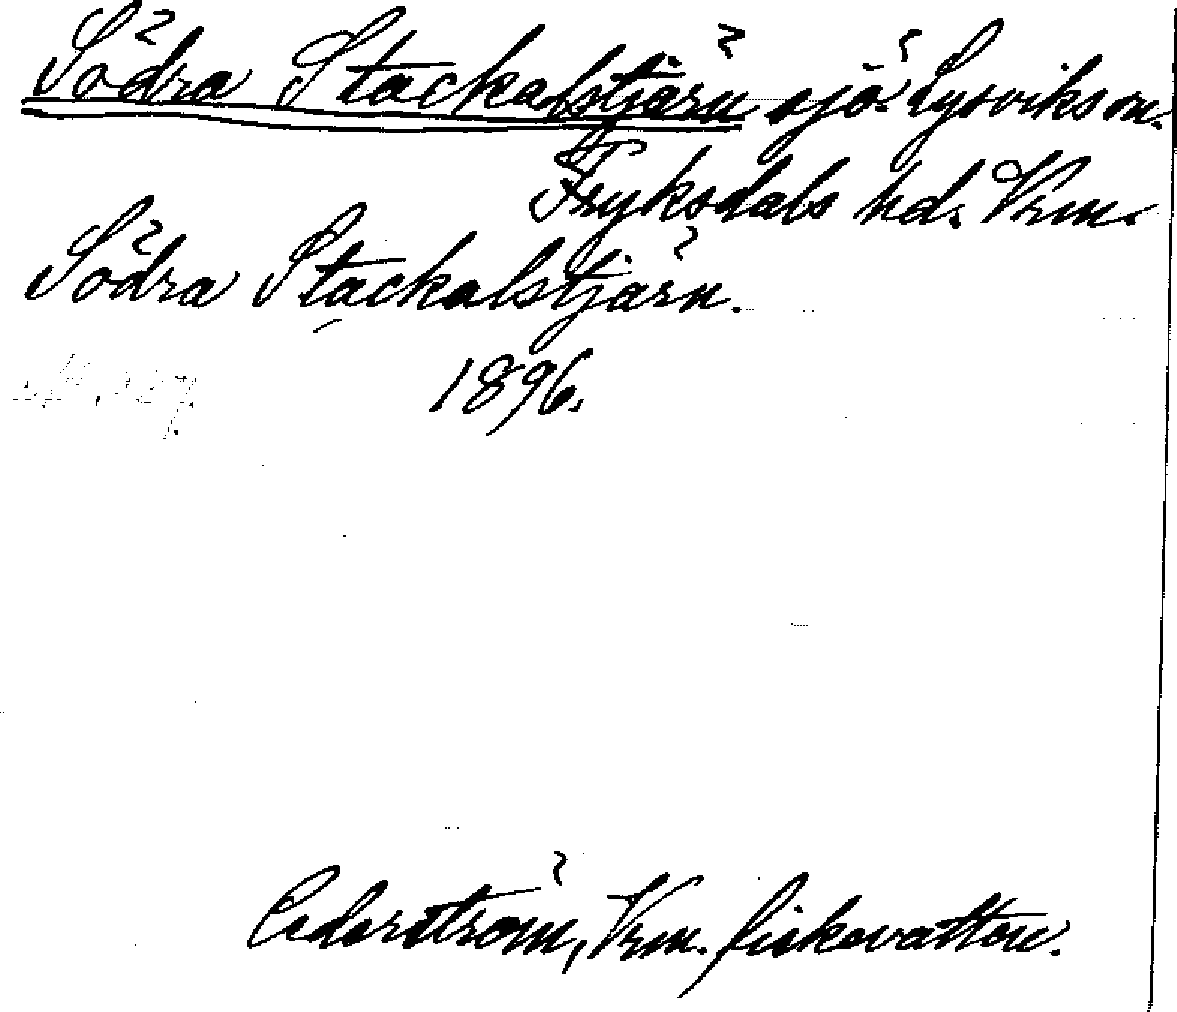 Södra Stackalstjärn sjö Lysviks sn.
Fryksdals hd. Vrm.
Södra Stackalstjärn.
1896.
Cederström, Vrm. fiskevatten.